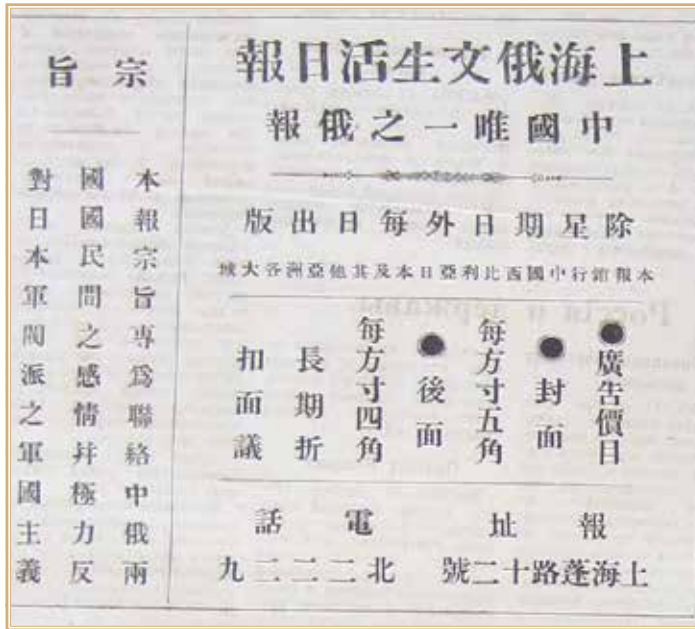 上海俄文生活日報
中國唯一之俄報
除星期日外每日出版
本報銷行中國西比利亞日本及其他亞洲各大城
●廣告價目
●封面
每方寸五角
●後面
每方寸四角
長期折
扣面議
報址
上海蓬路十二號
電話
北二二二九
宗旨
本報宗旨專爲聯絡中俄兩
國國民間之感情幷極力反
對日本軍閥派之軍國主義